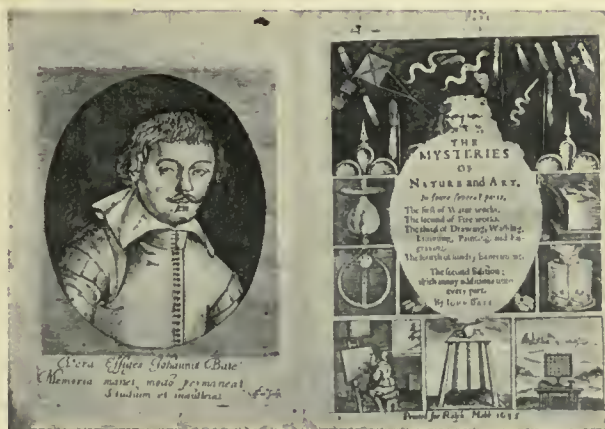 Vera Effigies Johannis Bate
Memoria manet, modo permaneat
Studium et industria
THE
MYSTERIES
OF
NATURE and ART.
In foure severall parts.
The first of Water works.
The second of Fire works.
The third of Drawing, Washing,
Limming, Painting, and En-
graving.
The fourth of sundry Experiments.
The second Edition;
with many additions unto
every part.
By Iohn Bate
Printed for Ralph Mabb 1635